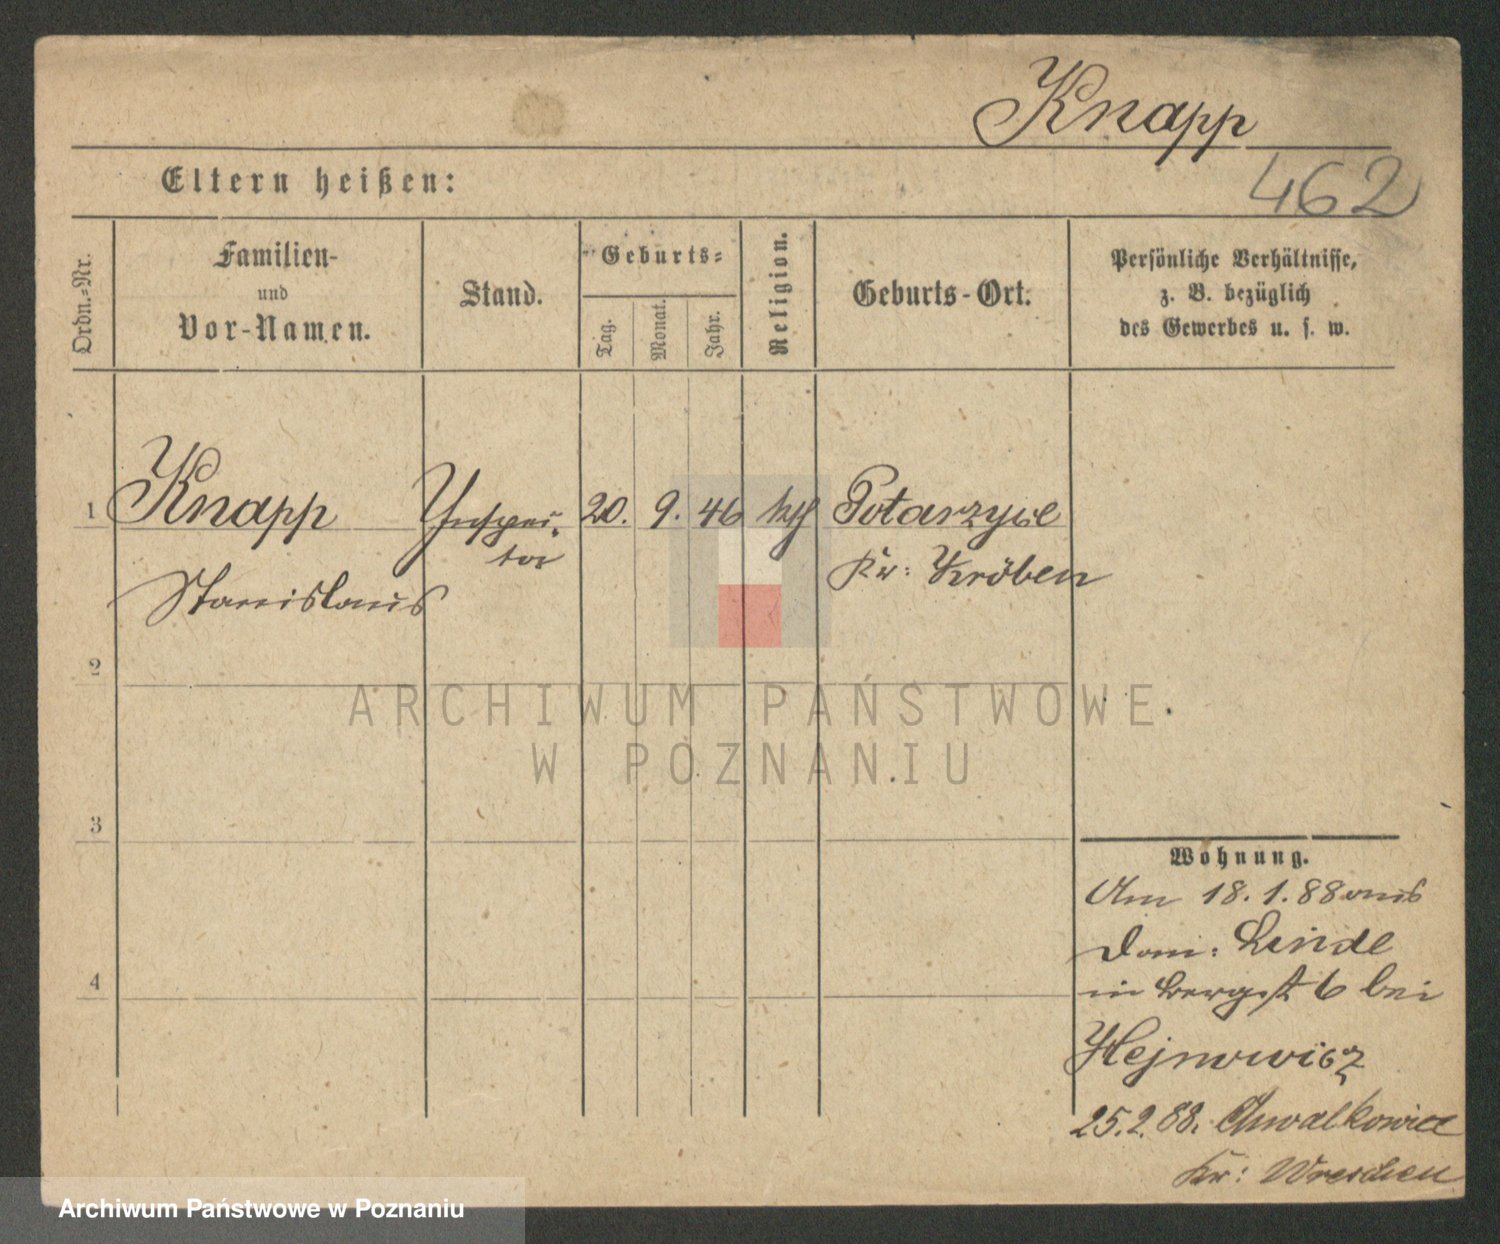 Knapp
462
Eltern heißen:
Ordn.-Nr.
Familien-
und
Vor-Namen.
Stand.
Geburts-
Tag.
Monat.
Jahr.
Religion.
Geburts-Ort.
Persönliche Verhältnisse,
z. B. bezüglich
des Gewerbes u. s. w.
1 Knapp Inspek- 20. 9. 46 kth Potarzyce
tor
Stanislaus Kr: Kröben
2
3
4
ARCHIWUM PAŃSTWOWE
W POZNANIU
Wohnung.
Am 18.1.88 aus
Dom: Linde
in Bergst 6 bei
Hejnowicz
25.2.88. Chwalkowice
Kr: Wreschen
Archiwum Państwowe w Poznaniu